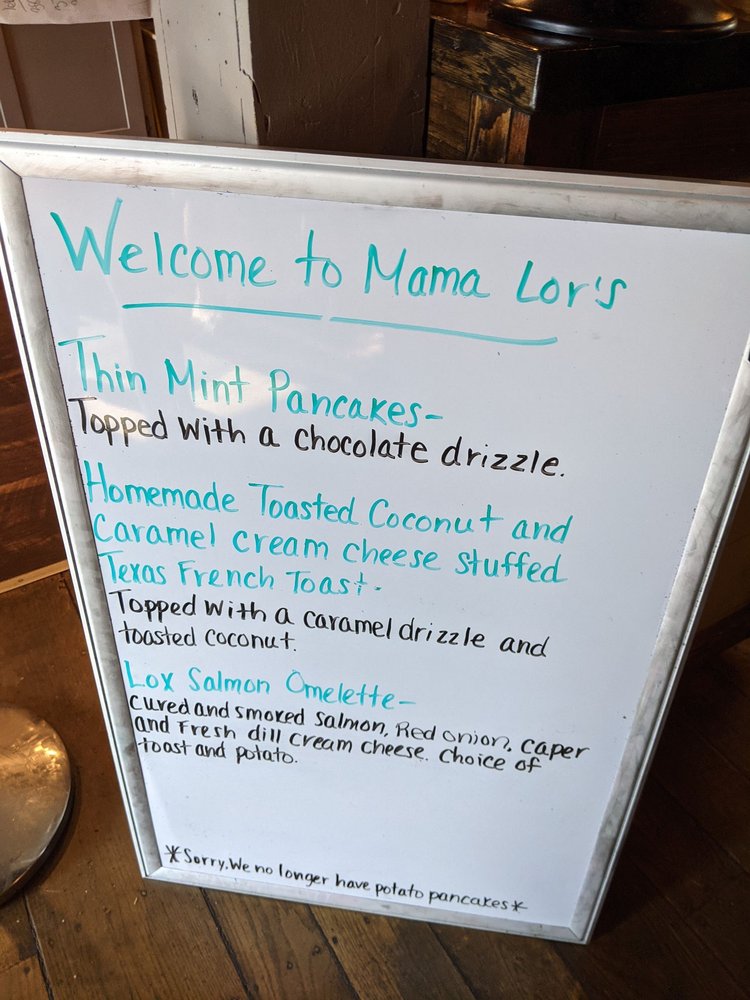 Welcome to Mama Lor's
Thin Mint Pancakes-
Topped with a chocolate drizzle.
Homemade Toasted Coconut and
Caramel cream cheese stuffed
Texas French Toast-
Topped with a caramel drizzle and
toasted coconut.
Lox Salmon Omelette-
Cured and smoked salmon, Red onion, caper
and Fresh dill cream cheese. Choice of
toast and potato.
*Sorry, We no longer have potato pancakes*